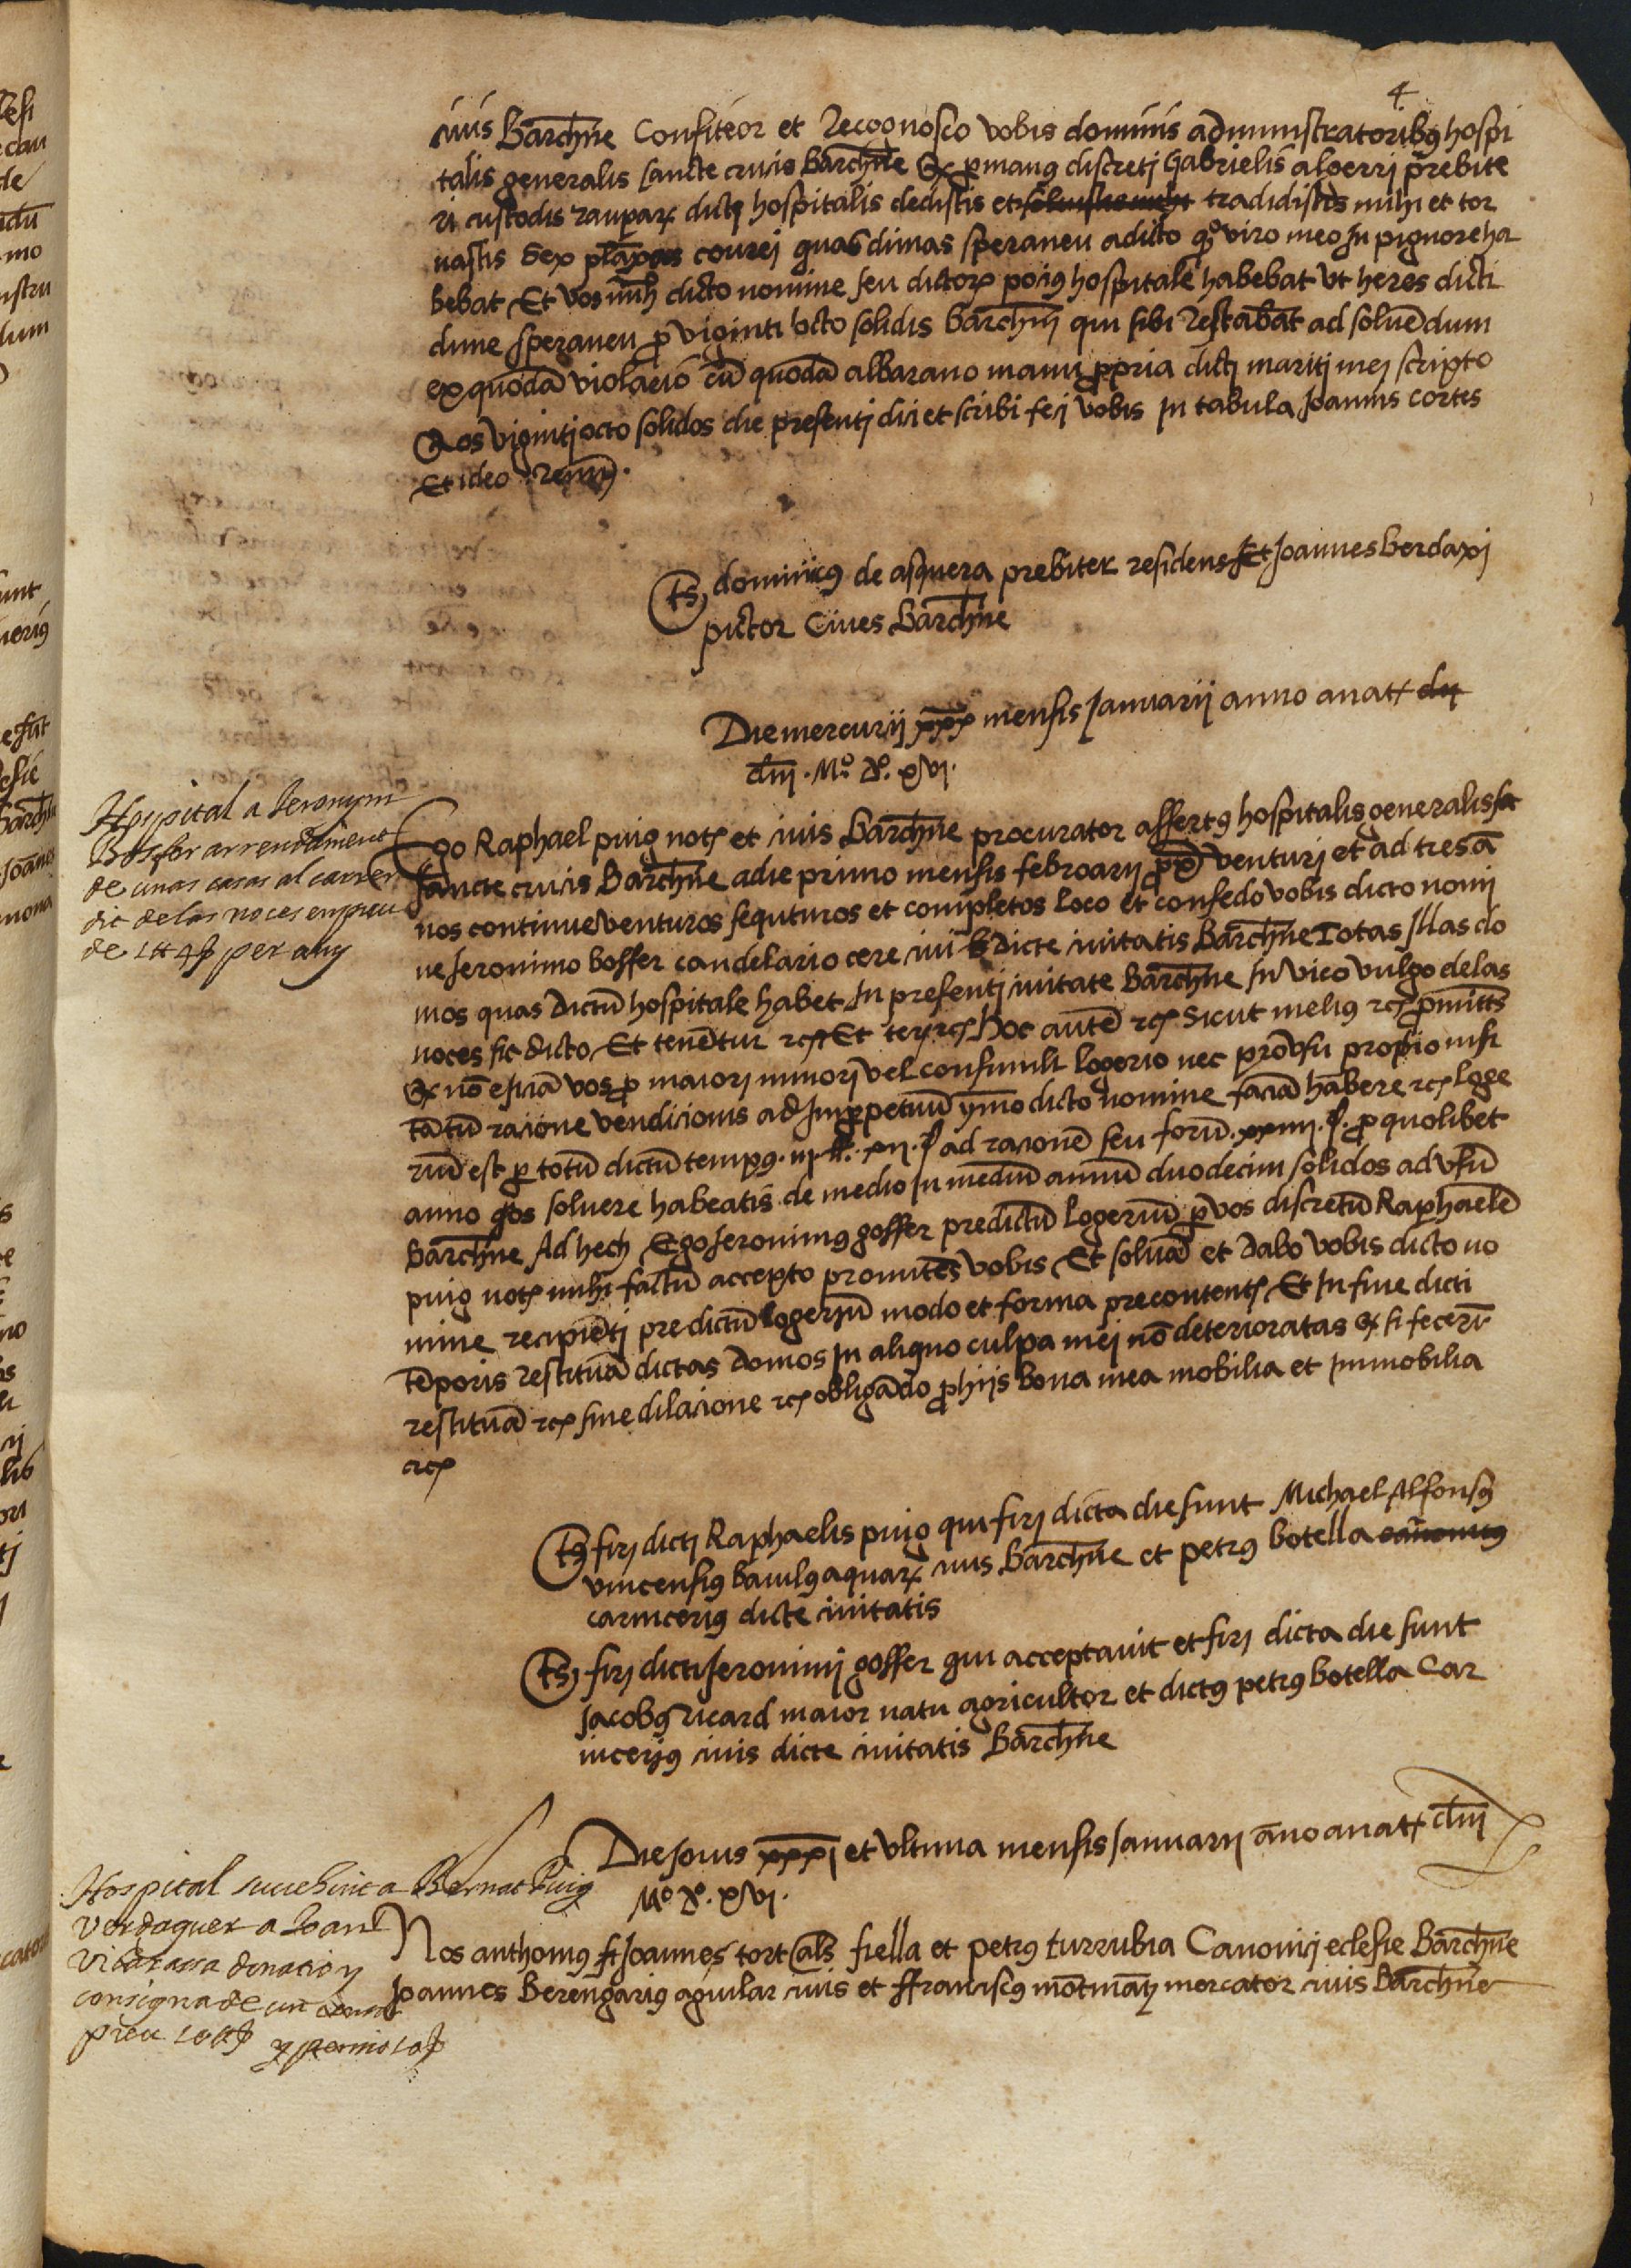 4
civis Barchne Confiteor et Recognosco vobis dominis administratoribus hospi
talis generalis sancte crucis Barchne Q per manus discreti Gabrielis alverri prebite
ri custodis rauparum dicti hospitalis dedistis et solvistis michi tradidistis mihi et tor
nastis sex plaxas courej quas dimas speraneu a dicto q viro meo In pignore ha
bebat Et vos mihi dicto nomine seu dictorum pocius hospitale habebat ut heres dicti
dime speraneu pro viginti octo solidis barchin qui sibi Restabat ad solvēdum
ex quodā violario cū quodā albarano manu propria dicti mariti mei scripto
Qos viginti octo solidos die presenti dici et scribi feci vobis In tabula Joannis cortes
Et ideo Renun.
Ts, dominicus de asquera prebiter residens Et Joannes berdaxi
pictor Cives Barchne
Die mercurij xxx mensis Januarij anno a nat dn
dni . Mº Dº xvi.
Hospital a Jeronym
Bosser arrendament
de unas casas al carrer
dit de las noces en preu
de 1 ₶ 4 ß per any
Ego Raphael puig not et civis Barchne procurator assertus hospitalis generalis sa
sancte crucis Barchne a die primo mensis febroarij prox venturi et ad tres ā
nos continue venturos sequturos et completos loco et consedo vobis dicto nomi
ne Jeronimo bosser candelario cere civi dicte civitatis Barchne Totas Illas do
mos quas dictū hospitale habet In presenti civitate Barchne In vico vulgo de las
noces sic dicto Et tenētur rc Et ter rc Hoc autē rc Sicut melius rc promitts
Q nō eiciā vos pro maiori minori vel consimili logerio nec pro usu propio nisi
tātū racione vendicionis ad Imperpetuū ymo dicto nomine faciā habere rc loge
riū est per totū dictū tempus . iii ₶ . xii . ß ad racionē seu forū . xxiiii . ß . pro quolibet
anno qos solvere habeatis de medio In mediū annū duodecim solidos ad usū
Barchne Ad hech Ego Jeronimus gosser predictū logeriū per vos discretū Raphaelē
puig not mihi factū accepto promitēs vobis Et solvā et dabo vobis dicto no
mine recipiēti predictū logeriū modo et forma precontent Et In fine dicti
tēporis restituā dictas domos In aliquo culpa mei nō deterioratas Q si fecerī
restituā rc sine dilacione rc obligādo pro hijs bona mea mobilia et Immobilia
rc
Ts firj dicti Raphaelis puig qui firj dicta die sunt Michael Alfonsus
vincensius baiulus aquarum civis Barchne et petrus botella canonicus
carnicerius dicte civitatis
Ts, firj dicti Jeronimi gosser qui acceptavit et firj dicta die sunt
Jacobus ricard maior natu agricultor et dictus petrus botella Car
nicerius civis dicte civitatis Barchne
Die Jovis xxxi et ultima mensis Januarij āno a nat dni
Mº Dº . xvi .
Hospital succehint a Bernat Puig
Verdaguer a Joan
donacio y
consigna de un
preu 10 ₶ ß
Nos anthonius st Joannes tort als fiella et petrus turrubia Canonici eclesie Barchne
Joannes Berengarius aguilar civis et ffranciscus mōtmāy mercator civis Barchne